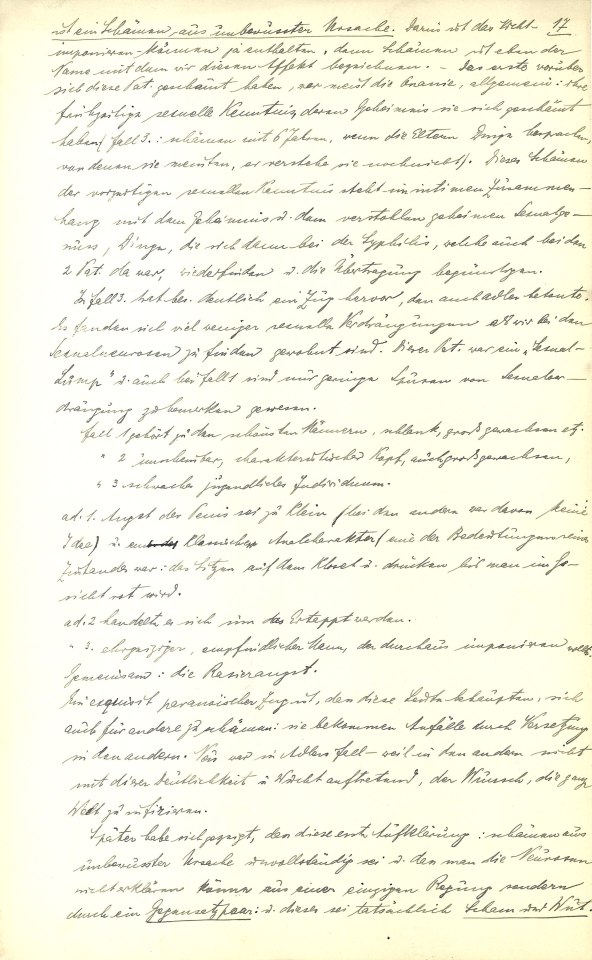 ist ein Schämen aus unbewusster Ursache. Darin ist das Nicht- 17
imponieren-können ja enthalten, denn Schämen ist eben der
Name mit dem wir diesen Affekt bezeichnen. – Das erste worüber
sich diese Pat. geschämt haben, war meist die Onanie, allgemein: ihre
frühzeitige sexuelle Kenntnis, deren Geheimnis sie sich geschämt
haben (Fall 3.: schämen mit 6 Jahren, wenn die Eltern Dinge besprachen,
von denen sie meinten, er verstehe sie noch nicht). Dieses Schämen
der vorzeitigen sexuellen Kenntnis steht im intimen Zusammen-
hang mit dem Geheimnis u. dem verstollen geheimen Sexualge-
nuss, Dinge, die sich dann bei der Syphilis, welche auch bei den
2 Pat. da war, wiederfinden u. die Übertragung begünstigen.
In Fall 3. trat bes. deutlich ein Zug hervor, den auch Adler betonte.
Es fanden sich viel weniger sexuelle Verdrängungen als wir bei den
Sexualneurosen zu finden gewohnt sind. Dieser Pat. war ein „Sexual-
Lump" u. auch bei Fall 1 sind nur geringe Spuren von Sexualver-
drängung zu bemerken gewesen.
Fall 1 gehört zu den schönsten Männern, schlank, gross gewachsen etz.
" 2 unscheinbar, charakteristischer Kopf, auch gross gewachsen,
" 3 schwaches jugendliches Individuum.
ad. 1. Angst der Penis sei zu klein (bei den andern war davon keine
Idee) u. ein klassischer Analcharakter (eine der Bedeutungen seines
Zustandes war: das Sitzen auf dem Kloset u. drücken bis man im Ge-
sicht rot wird.
ad. 2 handelt es sich um das Ertapptwerden.
" 3. ehrgeiziger, empfindlicher Mann, der durchaus imponieren wollte.
Gemeinsam: die Rasierangst.
Ein exquisit paranoischer Zug ist, dass diese Leute behaupten, sich
auch für andere zu schämen: sie bekommen Anfälle durch Versetzung
in den andern. Neu war in Adlers Fall – weil in den andern nicht
mit dieser Deutlichkeit u. Wucht auftretend, der Wunsch, die ganze
Welt zu infizieren.
Später habe sich gezeigt, dass diese erste Aufklärung: schämen aus
unbewusster Ursache unvollständig sei u. dass man die Neurosen
nicht erklären könne aus einer einzigen Regung sondern
durch ein Gegensatzpaar: u. dieses sei tatsächlich Scham und Wut.